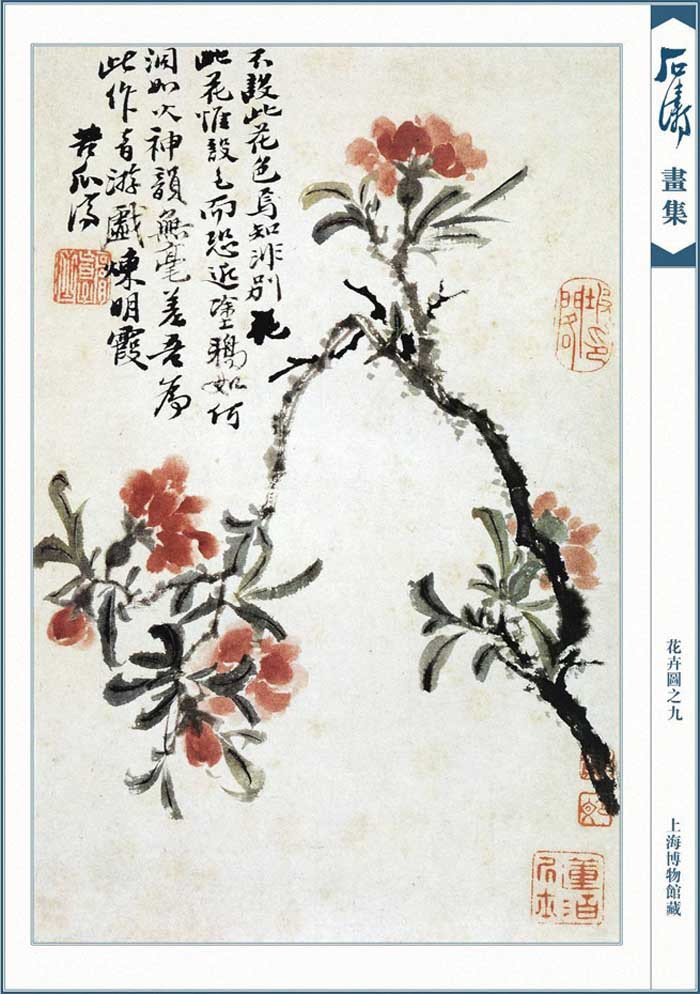 石濤
畫集
花卉圖之九
上海博物館藏
不設此花色焉知非別花
此花惟設色而恐近塗鴉如何
洞如火神韻無毫差吾為
此作者游戲煉明霞
苦瓜濟